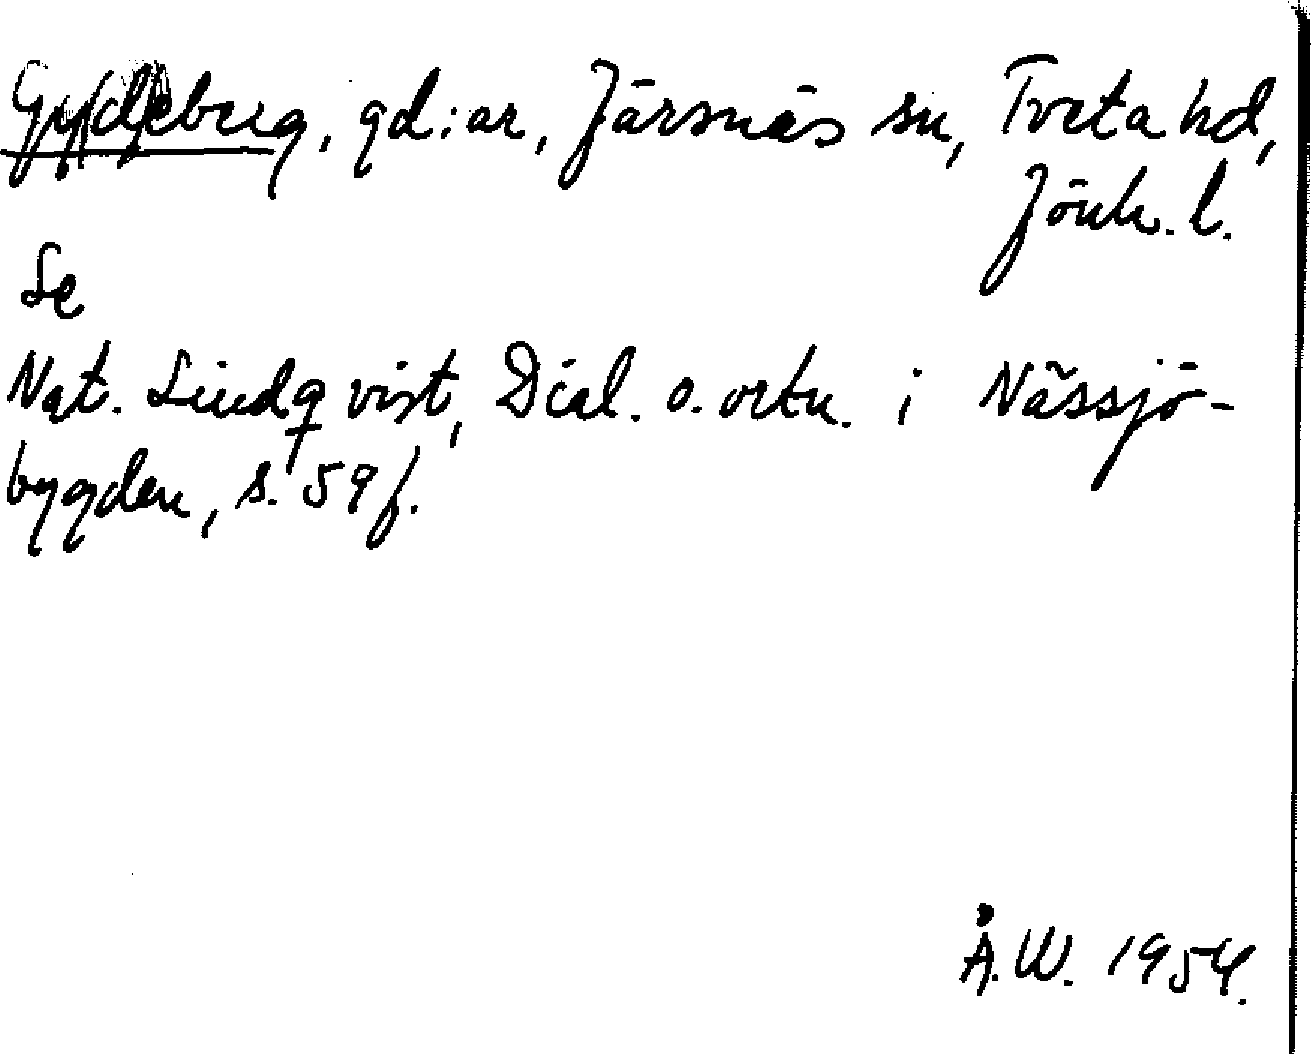 , gd:ar, Järsnäs sn, Tveta hd,
Jönk. l.
Se
Nat. Lindqvist, Dial. o. ortn. i Nässjö-
bygden, s. 59 f.
Å.W. 1954.